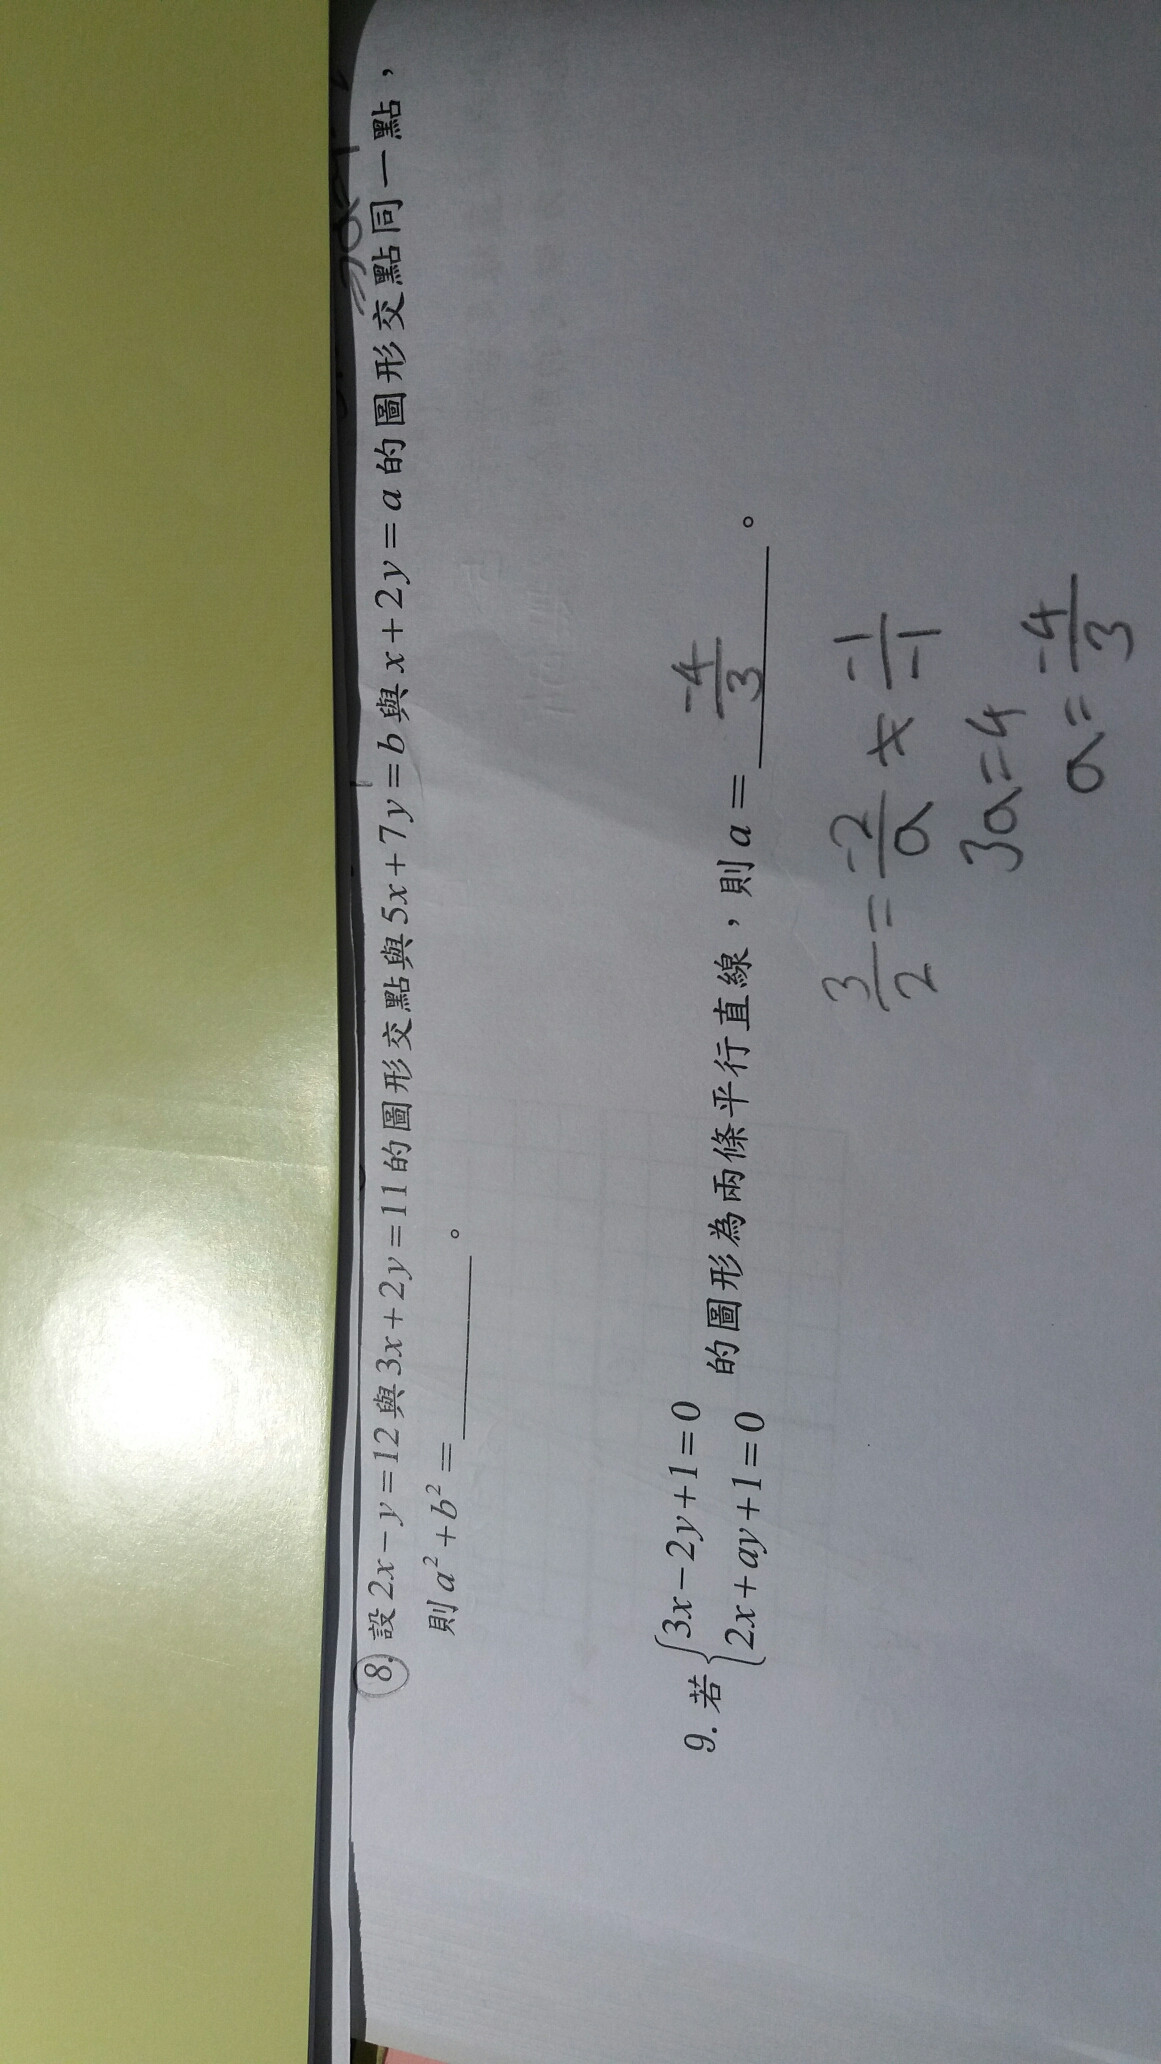 8. 設2x-y=12與3x+2y=11的圖形交點與5x+7y=b與x+2y=a的圖形交點同一點，
則a²+b²=________。
9. 若{3x-2y+1=0
2x+ay+1=0 的圖形為兩條平行直線，則a=________。
-4/3
3/2=-2/a×-1/-1
3a=4
a=-4/3